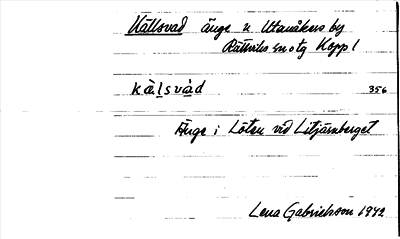 Källsvad änge n. Utanåkers by
Rättviks sn otg Kopp l
kàlsvàd 356
Änge i Löten vid Litjärnberget
Lena Gabrielsson 1942